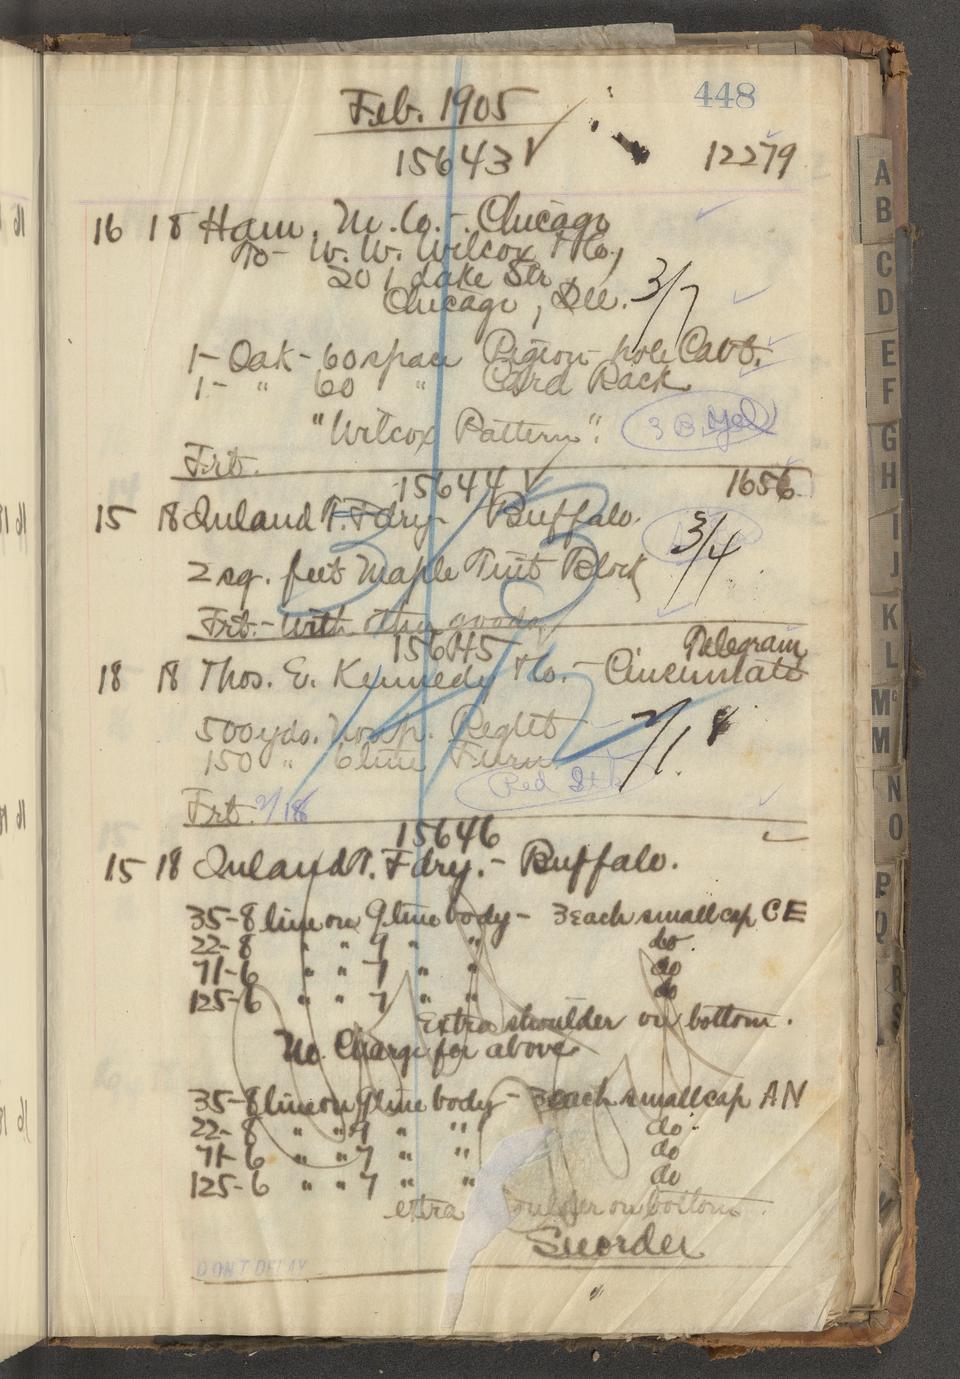 448
Feb. 1905
15643 12279
16 18 Ham. M. Co. - Chicago
To - W. W. Wilcox & Co,
201 Lake Str
Chicago, Ill. 3/7
1- Oak - 60 space Pigeon-hole Cab.
1- " 60 " Card Rack
"Wilcox Pattern".
Frt.
15644 1656
15 18 Inland T. Fdry - Buffalo.
3/4
2 sq. feet Maple Tint Block
Frt. - with other goods
15645 Telegram
18 18 Thos. E. Kennedy & Co. - Cincinnati
500 yds. Reglet
150 " 6 line Furn.
Frt. 2/18
15646
15 18 Inland T. Fdry. - Buffalo.
35-8 line on 9 line body - 3 each small cap CE
22-8 " " 9 " " do
71-6 " " 7 " " do
125-6 " " 7 " " do
Extra shoulder on bottom.
No Charge for above
35-8 line on 9 line body - 3 each small cap AN
22-8 " " 9 " " do
71-6 " " 7 " " do
125-6 " " 7 " " do
extra shoulder on bottom.
DON'T DELAY
A
B
C
D
E
F
G
H
I
J
K
L
Mc
M
N
O
P
Q
R
S